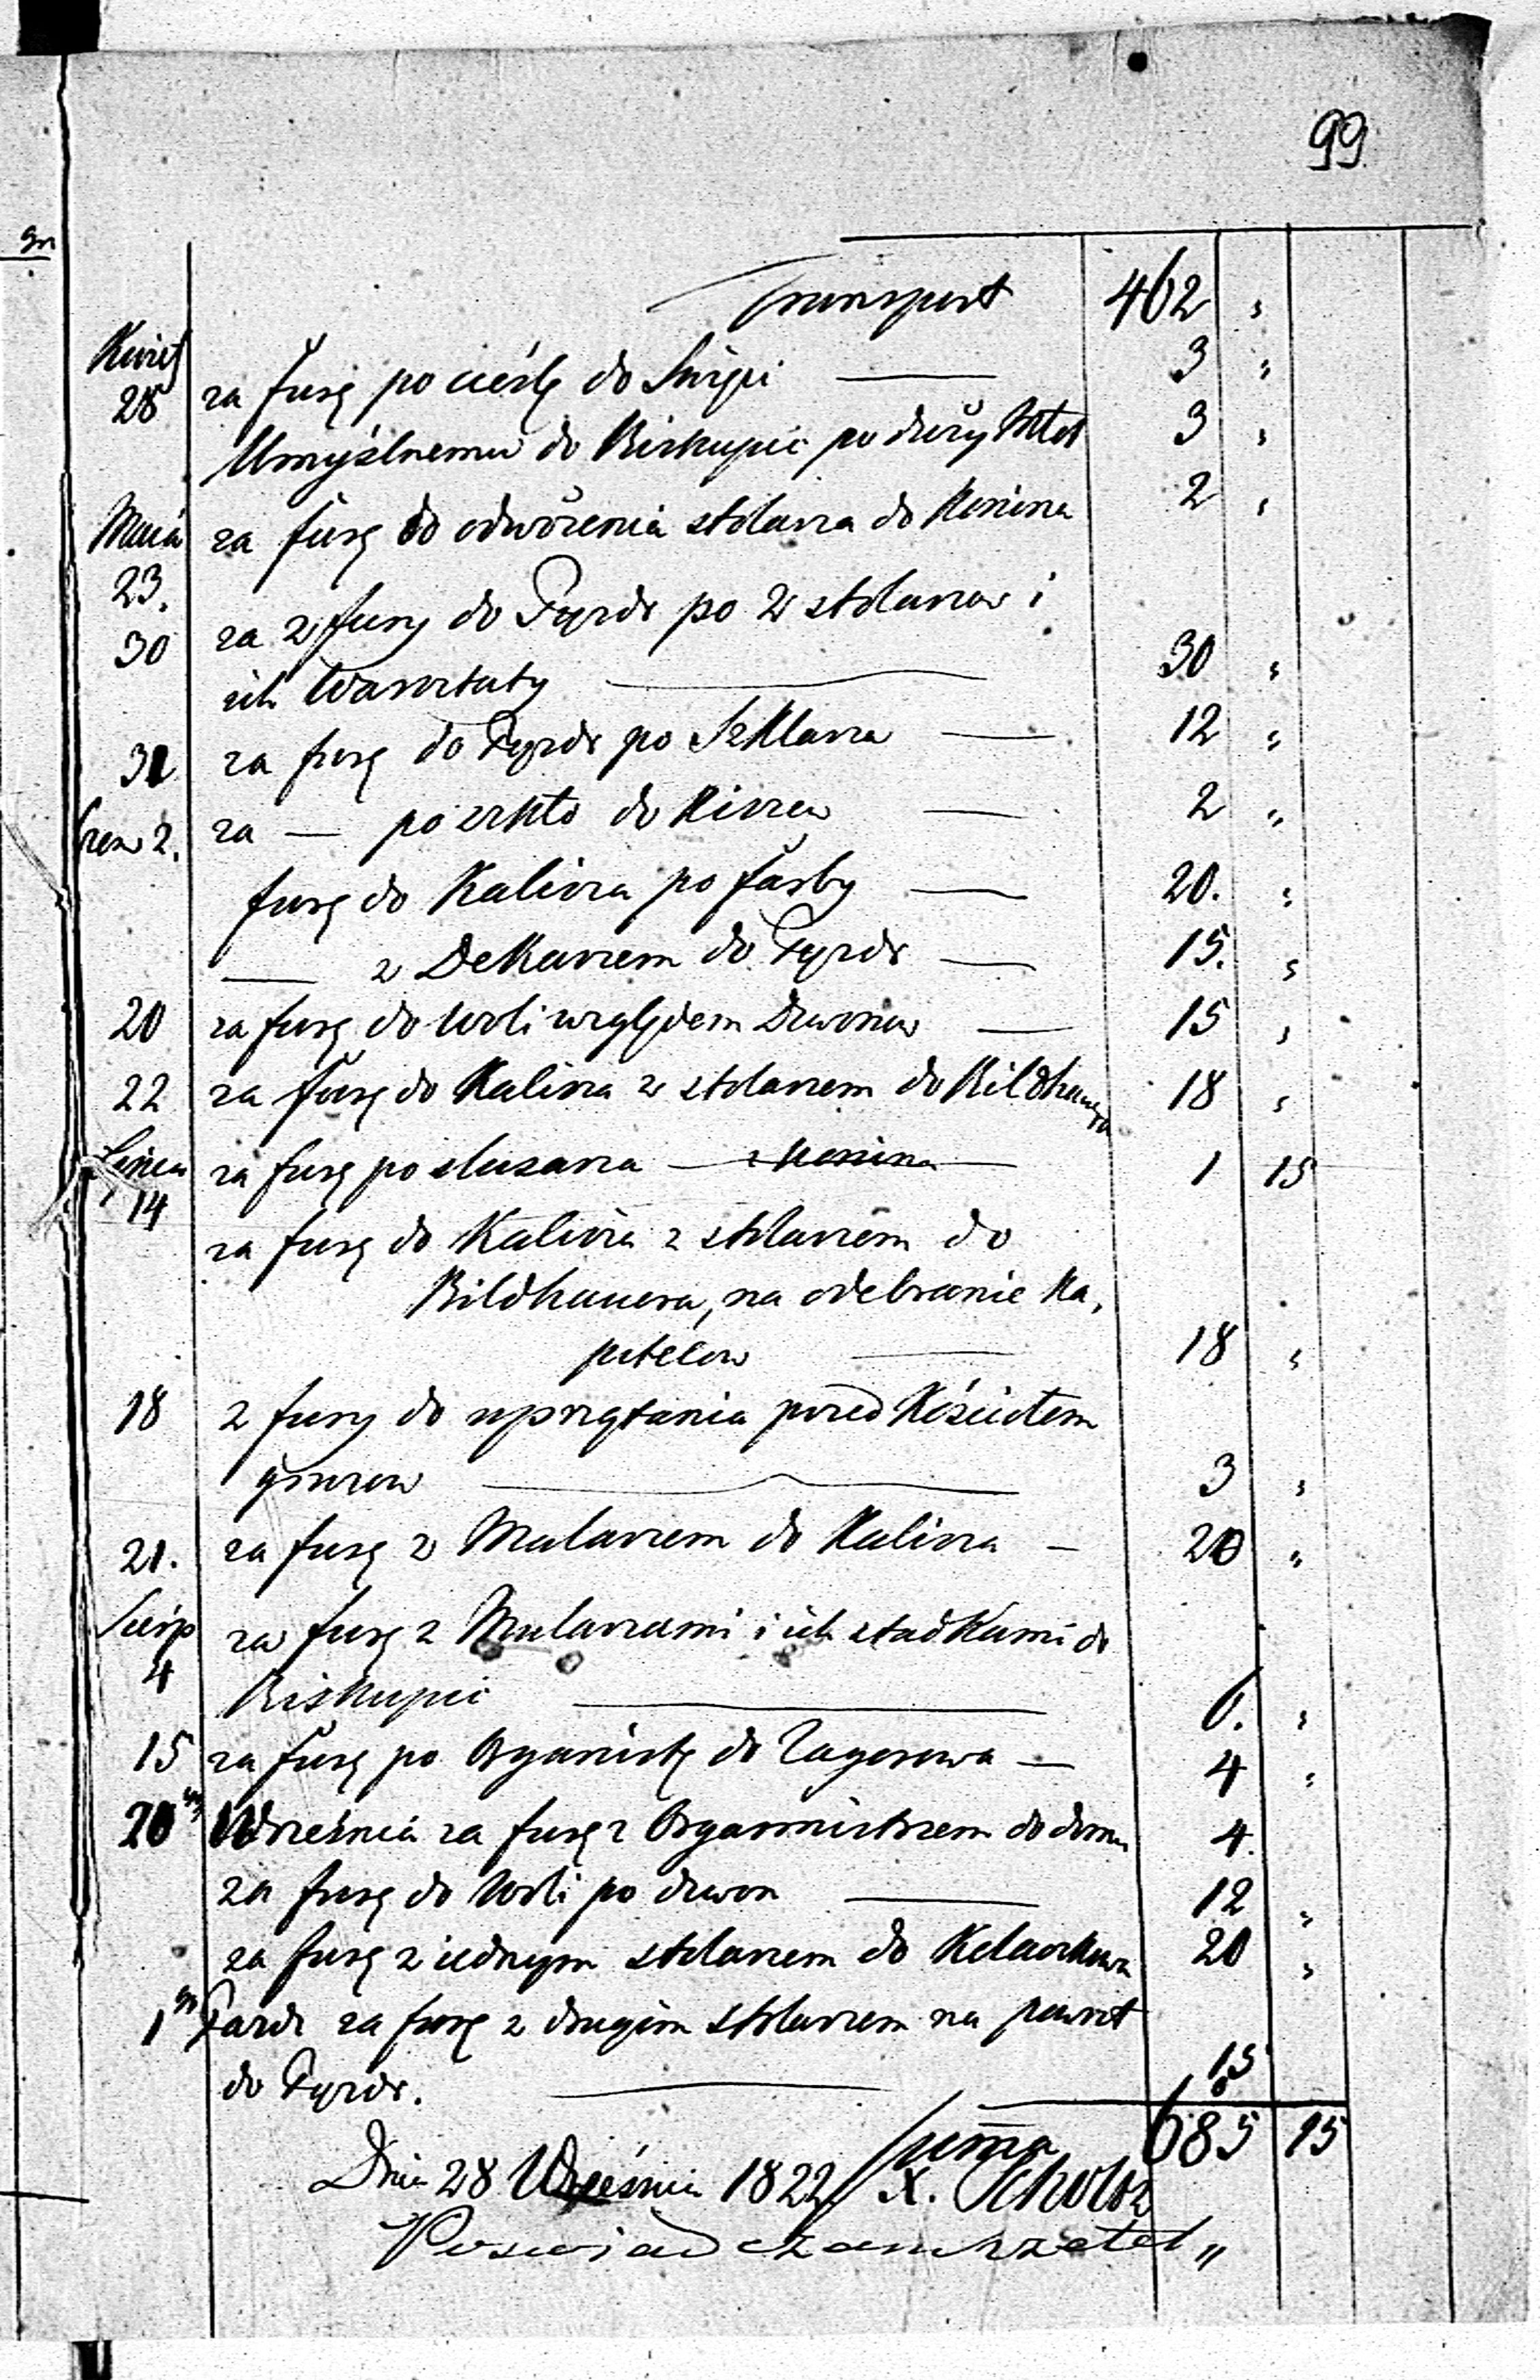 99
gr
Transport 462 "
Kwiet
28 za furę po cieślę do Snigu 3 "
Umyślnemu do Biskupic po duży Młot 3 "
Maia za furę do odwożenia stolarza do Konina 2 "
23.
30 za 2 fury do Pyzdr po 2 stolarzow i
ich Warsztaty 30 "
31 za furę do Pyzdr po Szklarza — 12 "
Czerw 2. za — po szkło do — 2 "
furę do Kalisza po farby — 20. "
— z Dekarzem do Pyzdr — 15. "
20 za furę do Woli względem Dzwonow — 15 "
22 za furę do Kalisza z stolarzem do Bildhauera 18 "
Lipca za furę po slusarza — z Konina — 1 15
14
za furę do Kalisza z stolarzem do
Bildhauera, na odebranie Ka,
pitelow 18 "
18 2 fury do uprzątania przed Kościołem
gruzow 3 "
21. za furę z Malarzem do Kalisza — 20 "
Sierp za furę z Mularzami i ich statkami do
4
Biskupic 6. "
15 za furę po Organistę do Zagorowa — 4 "
20 Września za furę z Organmistrzem do domu 4.
za furę do Woli po dzwon 12 "
za furę z iednym stolarzem do 20 "
1 Pazdz za furę z drugim stolarzem na powrot
do Pyzdr. 15
Summa 685 15
Dnia 28 Września 1822 X. Scholtz
Poswiadczam